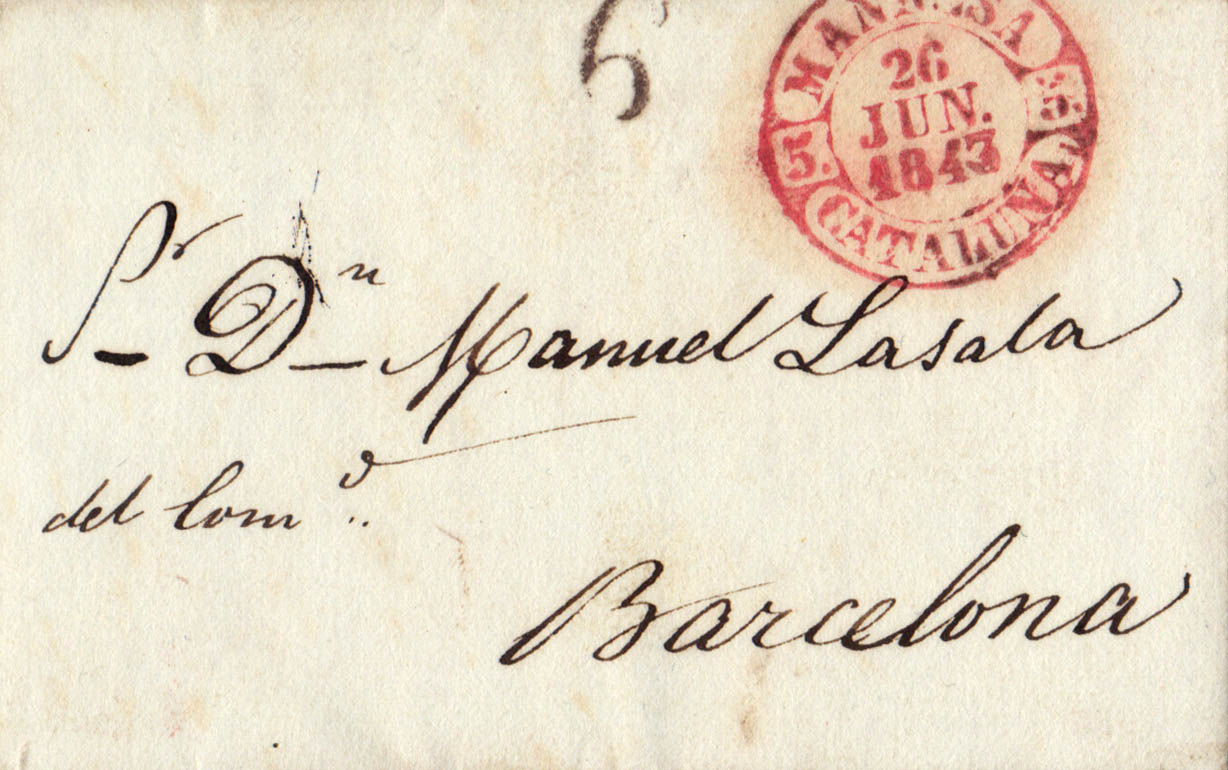 6
MANRESA
26
JUN.
1843
5. 5.
CATALUÑA
Sr Dn Manuel Lasala
del Como
Barcelona